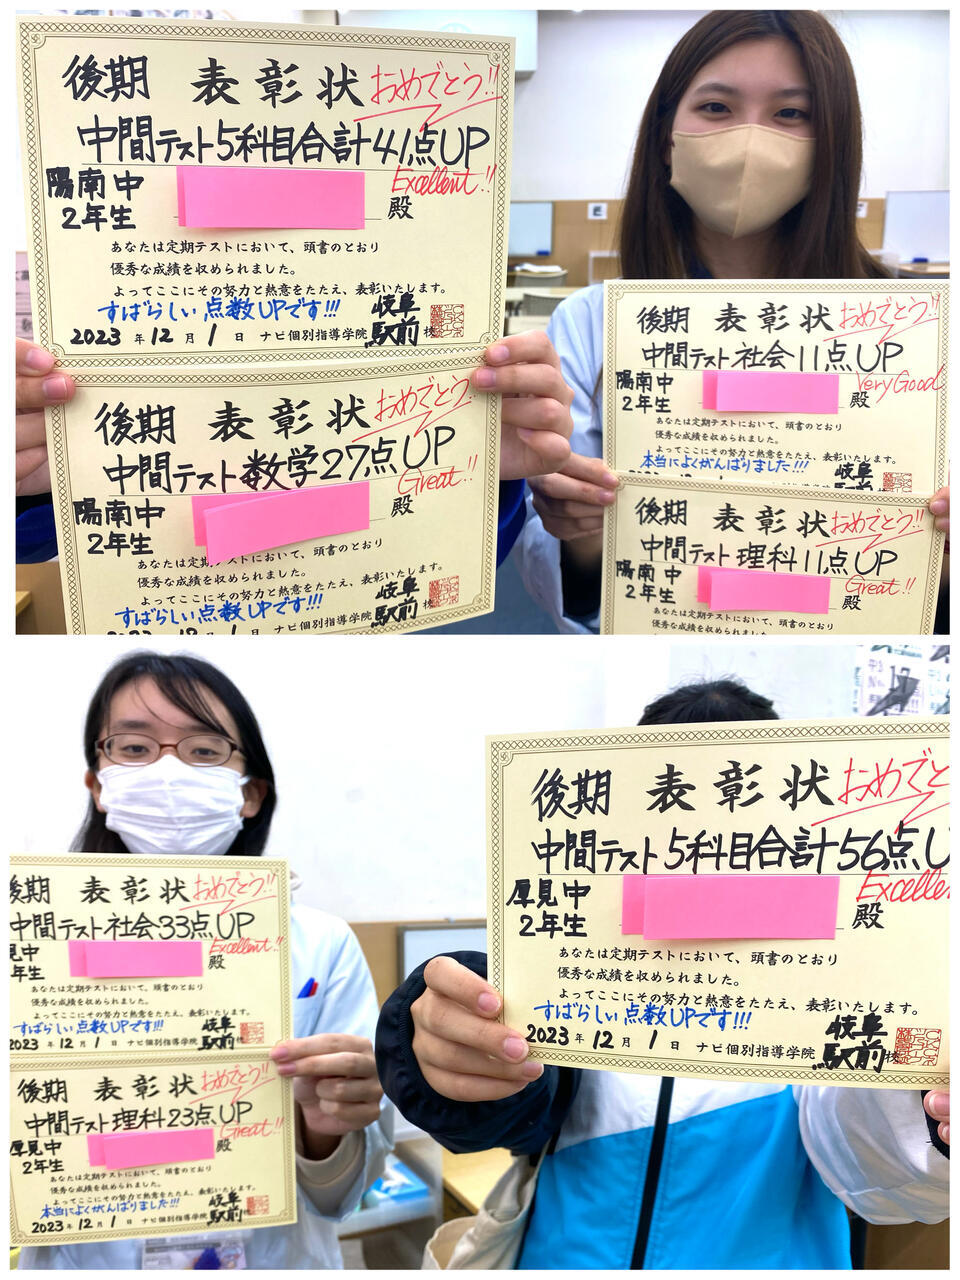 後期 表彰状 おめでとう!!
中間テスト5科目合計41点UP
Excellent!!
陽南中
2年生
殿
あなたは定期テストにおいて、頭書のとおり
優秀な成績を収められました。
よってここにその努力と熱意をたたえ、表彰いたします。
すばらしい点数UPです!!!
2023年12月1日 ナビ個別指導学院 岐阜駅前校
後期 表彰状 おめでとう!!
中間テスト数学27点UP
Great!!
陽南中
2年生
殿
あなたは定期テストにおいて、頭書のとおり
優秀な成績を収められました。
よってここにその努力と熱意をたたえ、表彰いたします。
すばらしい点数UPです!!!
2023 12 1日 ナビ個別指導学院 岐阜駅前校
後期 表彰状 おめでとう!!
中間テスト社会11点UP
Very Good
陽南中
2年生
殿
あなたは定期テストにおいて、頭書のとおり
優秀な成績を収められました。
よってここにその努力と熱意をたたえ、表彰いたします。
本当によくがんばりました!!!
岐阜
後期 表彰状 おめでとう!!
中間テスト理科11点UP
Great!!
陽南中
2年生
殿
あなたは定期テストにおいて、頭書のとおり
後期 表彰状 おめでとう!!
中間テスト社会33点UP
Excellent!!
見中
年生
殿
あなたは定期テストにおいて、頭書のとおり
優秀な成績を収められました。
よってここにその努力と熱意をたたえ、表彰いたします。
すばらしい点数UPです!!!
2023年12月1日 ナビ個別指導学院 岐阜駅前校
後期 表彰状 おめでとう!!
中間テスト理科23点UP
Great!!
厚見中
2年生
殿
あなたは定期テストにおいて、頭書のとおり
優秀な成績を収められました。
よってここにその努力と熱意をたたえ、表彰いたします。
本当によくがんばりました!!!
2023年12月1日 ナビ個別指導学院 岐阜駅前校
後期 表彰状 おめでと
中間テスト5科目合計56点U
Excelle
厚見中
2年生
殿
あなたは定期テストにおいて、頭書のとおり
優秀な成績を収められました。
よってここにその努力と熱意をたたえ、表彰いたします。
すばらしい点数UPです!!!
2023年12月1日 ナビ個別指導学院 岐阜駅前校